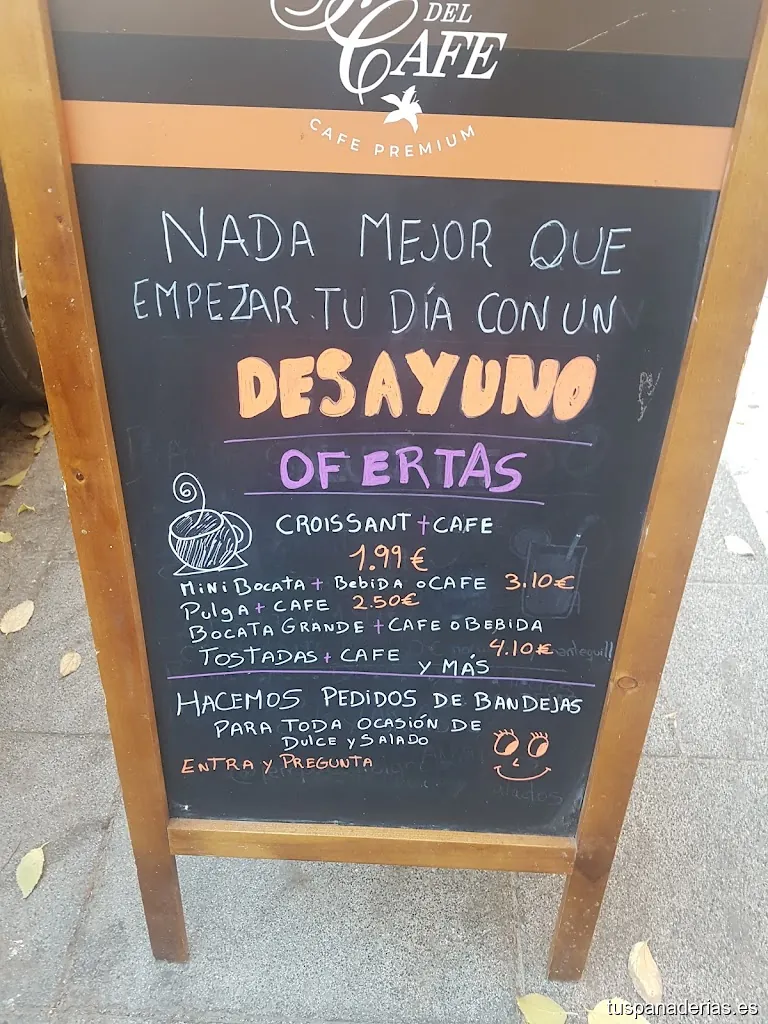 DEL
CAFE
CAFE PREMIUM
NADA MEJOR QUE
EMPEZAR TU DÍA CON UN
DESAYUNO
OFERTAS
CROISSANT + CAFE
1.99 €
MiNi BOCATA + BEBIDA o CAFE 3.10€
PULgA + CAFE 2.50€
BOCATA GRANDE + CAFE O BEBIDA
4.10€
TOSTADAS + CAFE Y MÁS
HACEMOS PEDIDOS DE BANDEJAS
PARA TODA OCASIÓN DE
DULCE Y SALADO
ENTRA Y PREGUNTA
tuspanaderias.es